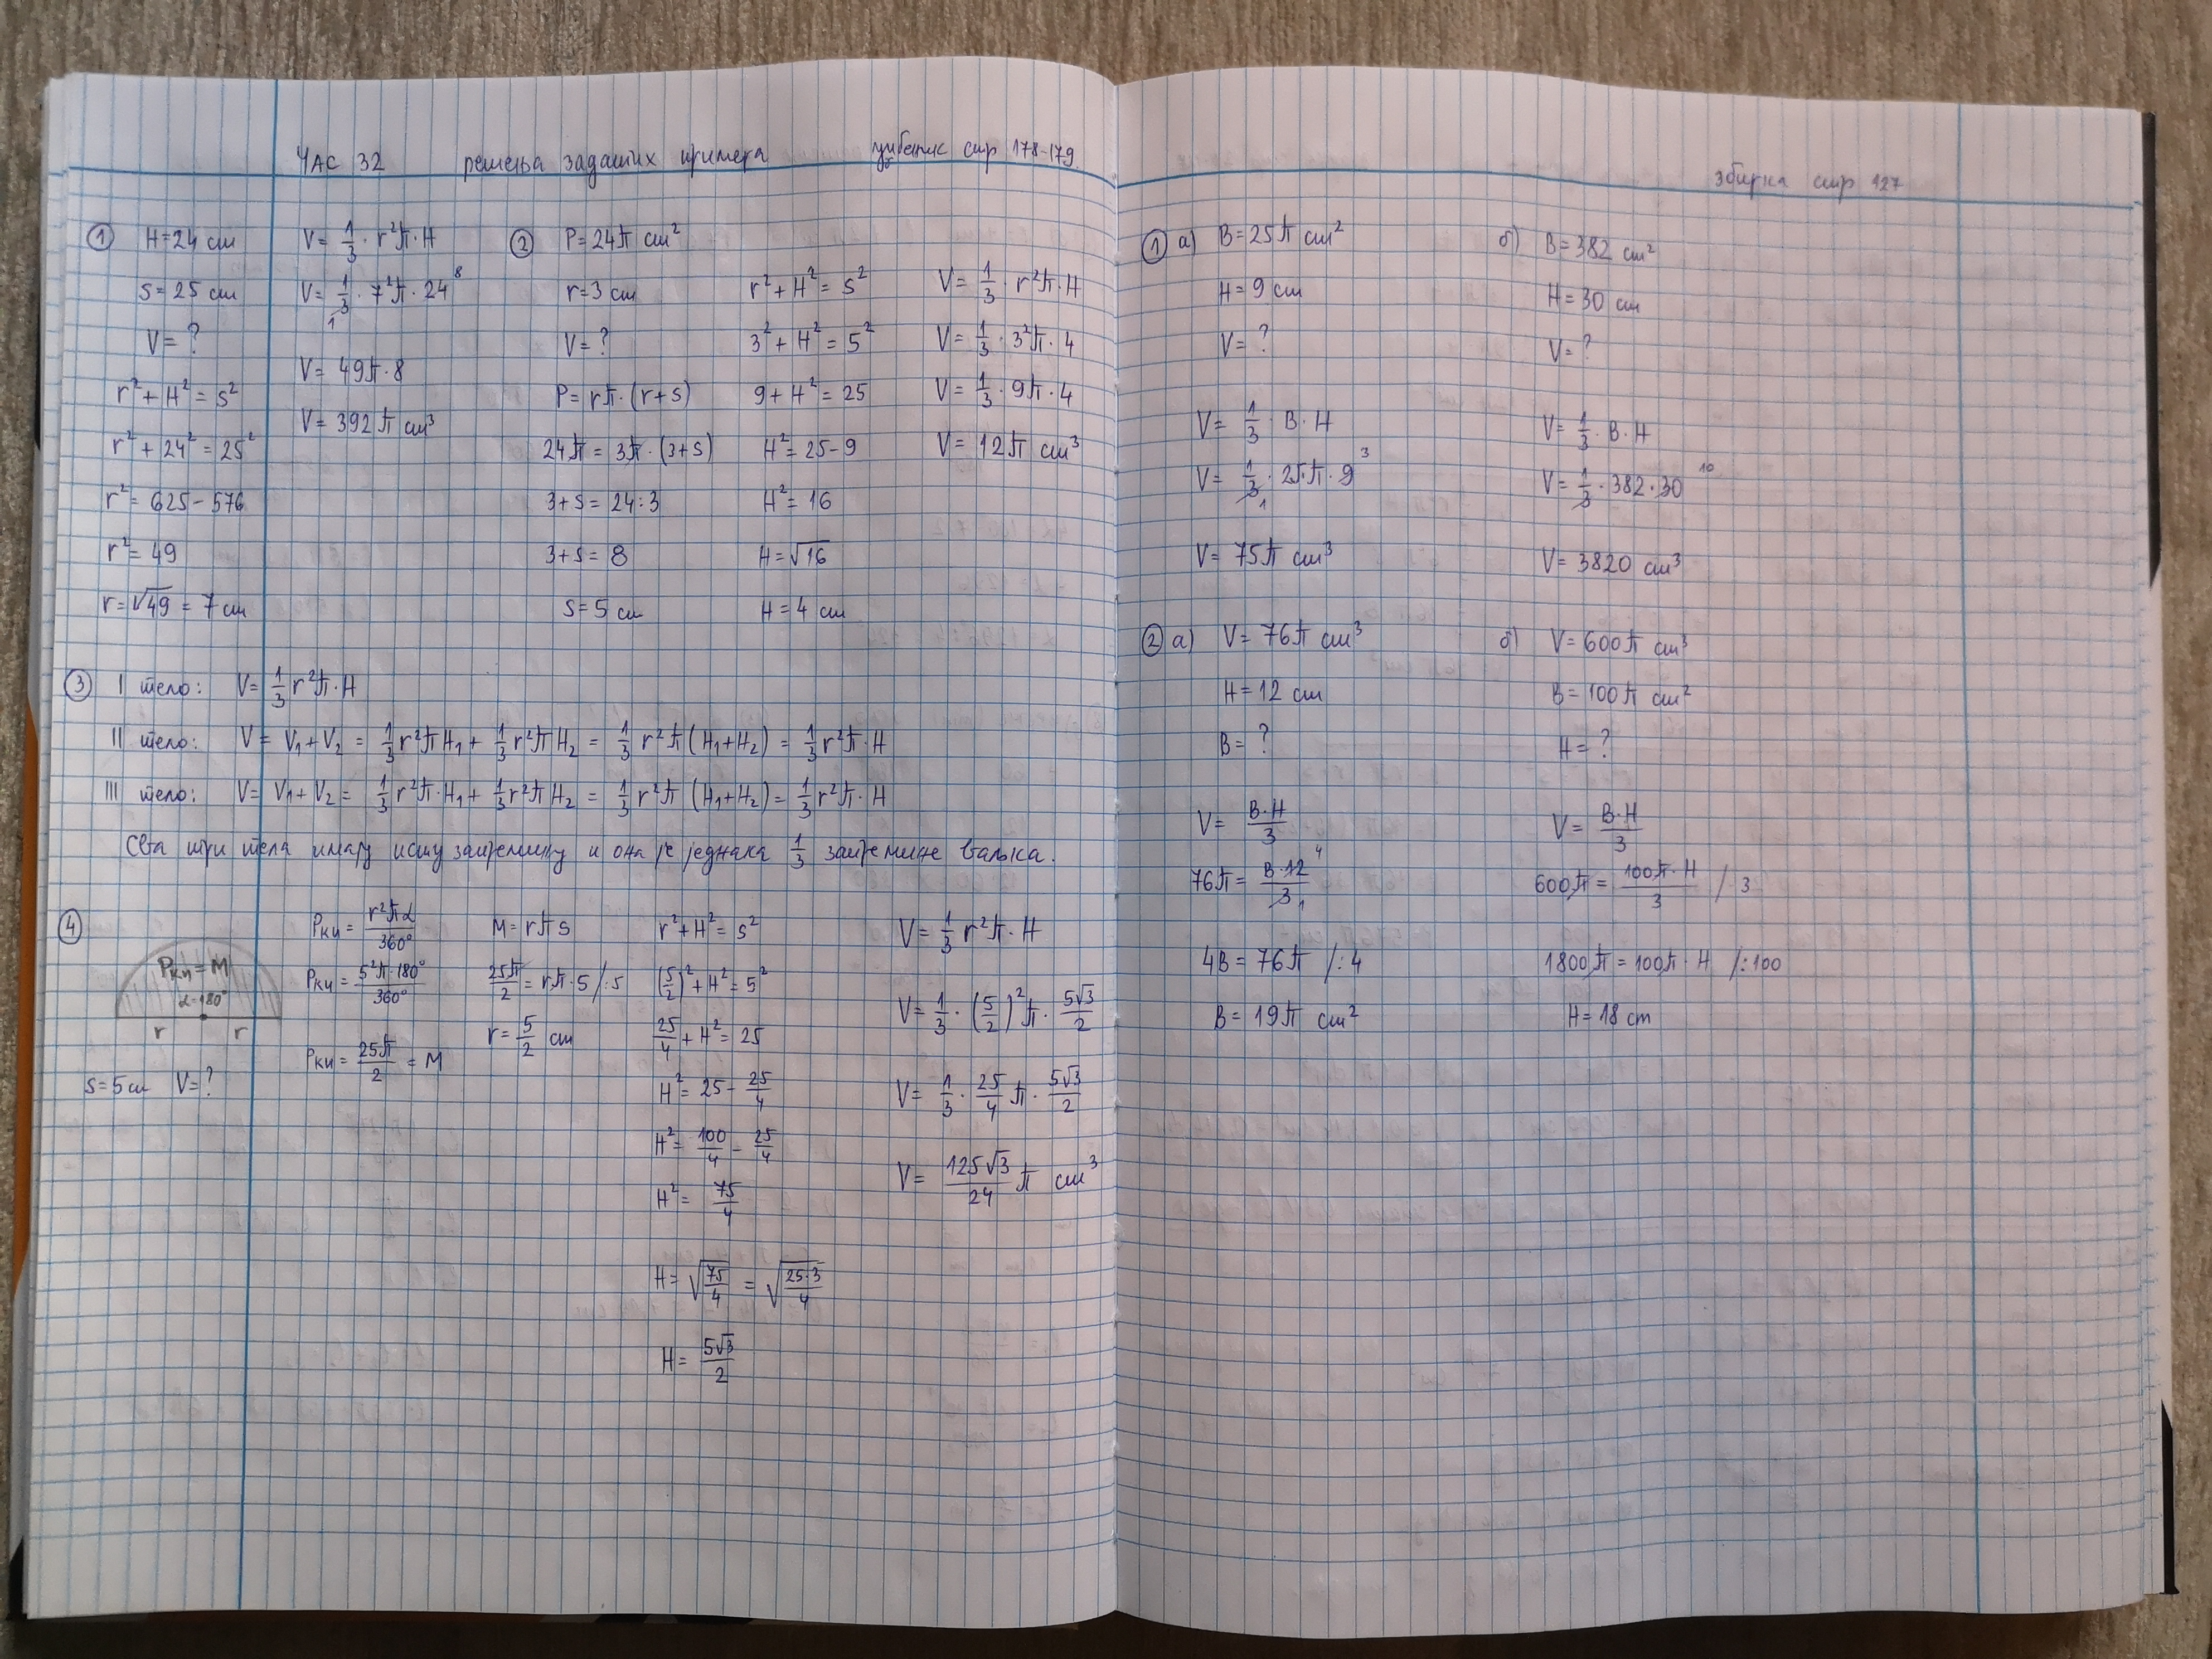 ЧАС 32 решења задатих примера уџбеник стр 178-179
① H=24 cm
s=25 cm
V=?
r²+H²=s²
r²+24²=25²
r²=625-576
r²=49
r=√49=7 cm
V=1/3·r²π·H
V=1/3·7²π·24 8
1
V=49π·8
V=392π cm³
② P=24π cm²
r=3 cm
V=?
P=rπ·(r+s)
24π=3π·(3+s)
3+s=24:3
3+s=8
s=5 cm
r²+H²=s²
3²+H²=5²
9+H²=25
H²=25-9
H²=16
H=√16
H=4 cm
V=1/3·r²π·H
V=1/3·3²π·4
V=1/3·9π·4
V=12π cm³
③ I тело: V=1/3r²π·H
II тело: V=V₁+V₂=1/3r²πH₁+1/3r²πH₂=1/3r²π(H₁+H₂)=1/3r²π·H
III тело: V=V₁+V₂=1/3r²π·H₁+1/3r²πH₂=1/3r²π(H₁+H₂)=1/3r²π·H
Сва три тела имају исту запремину и она је једнака 1/3 запремине ваљка.
④
Pки=M
α=180°
r r
s=5cm V=?
Pки=r²πα/360°
Pки=5²π·180°/360°
Pки=25π/2=M
M=rπs
25π/2=rπ·5/:5
r=5/2 cm
r²+H²=s²
(5/2)²+H²=5²
25/4+H²=25
H²=25-25/4
H²=100/4-25/4
H²=75/4
H=√75/4=√25·3/4
H=5√3/2
V=1/3r²π·H
V=1/3·(5/2)²π·5√3/2
V=1/3·25/4π·5√3/2
V=125√3/24π cm³
збирка стр 127
① а) B=25π cm²
H=9 cm
V=?
V=1/3·B·H
V=1/3·25·π·9 3
1
V=75π cm³
б) B=382 cm²
H=30 cm
V=?
V=1/3·B·H
V=1/3·382·30 10
V=3820 cm³
② а) V=76π cm³
H=12 cm
B=?
V=B·H/3
76π=B·12/3 4
1
4B=76π /:4
B=19π cm²
б) V=600π cm³
B=100π cm²
H=?
V=B·H/3
600π=100π·H/3 /·3
1800π=100π·H /:100
H=18 cm